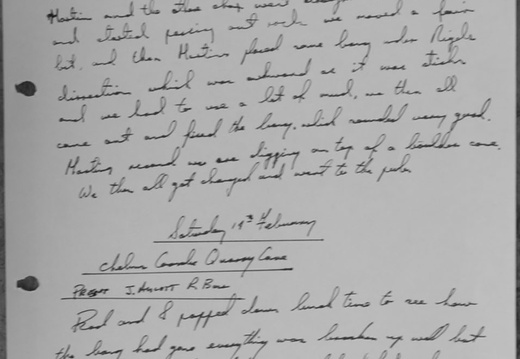 Martin and the other chap went
and started passing out rock. we moved a fair
bit, and then Martin placed some bang under Nigels
dissection which was awkward as it was
and we had to use a lot of mud, we then all
came out and fired the bang, which sounded very good.
Martin we are digging on top of a boulder cave.
We then all got changed and went to the pub
Saturday 19th February
Quarry Cave
PRESENT J.
and I popped down lunch time to see how
the bang had gone everything was broken up well but